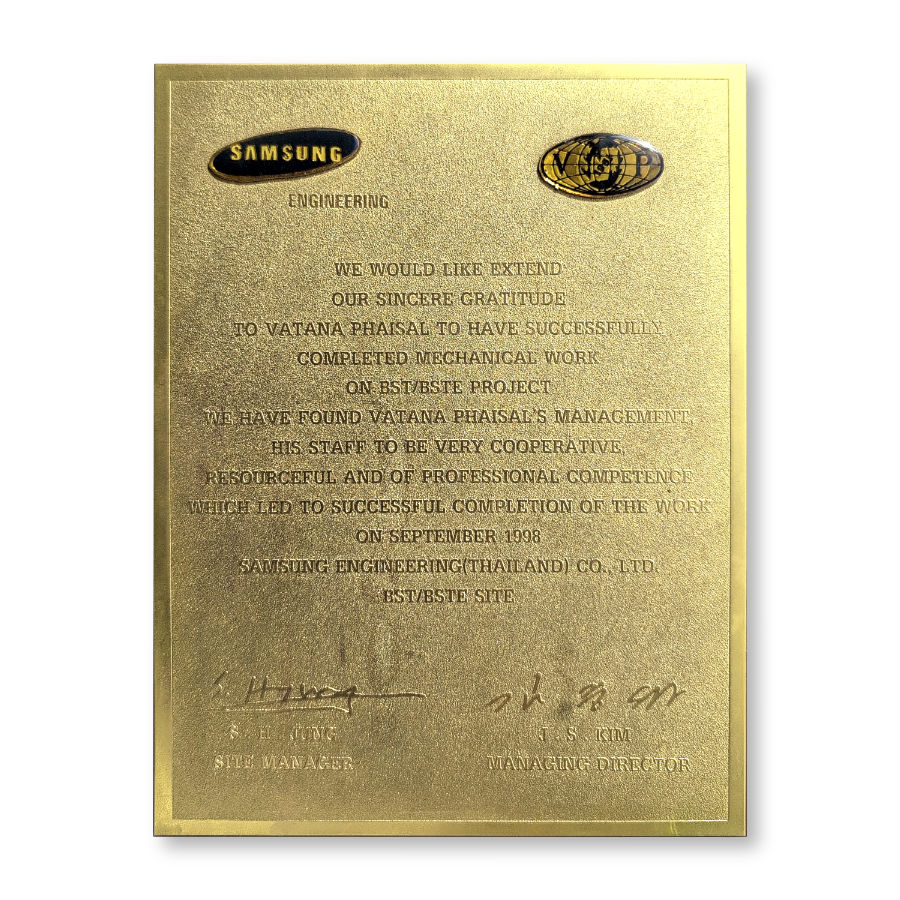 SAMSUNG
V P
ENGINEERING
WE WOULD LIKE EXTEND
OUR SINCERE GRATITUDE
TO VATANA PHAISAL TO HAVE SUCCESSFULLY
COMPLETED MECHANICAL WORK
ON BST/BSTE PROJECT
WE HAVE FOUND VATANA PHAISAL'S MANAGEMENT,
HIS STAFF TO BE VERY COOPERATIVE,
RESOURCEFUL AND OF PROFESSIONAL COMPETENCE
WHICH LED TO SUCCESSFUL COMPLETION OF THE WORK
ON SEPTEMBER 1998
SAMSUNG ENGINEERING(THAILAND) CO., LTD.
BST/BSTE SITE
S. H. JUNG
J. S. KIM
SITE MANAGER
MANAGING DIRECTOR